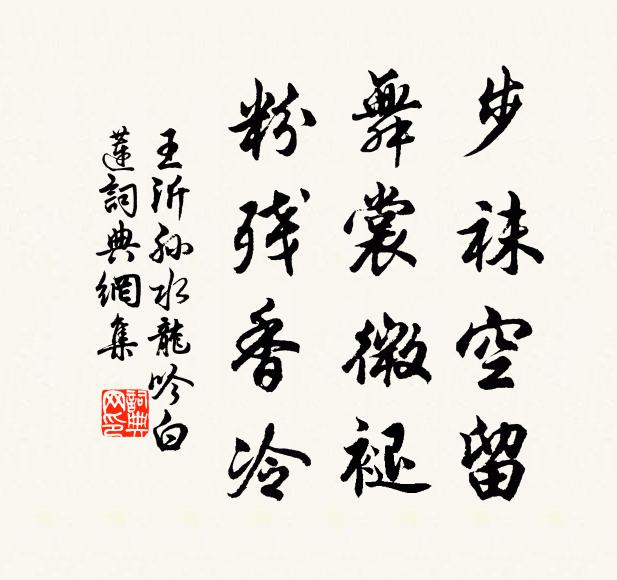 步袜空留
舞裳微褪
粉残香冷
王沂孙水龍吟白
蓮詞典網集
詞典
网印